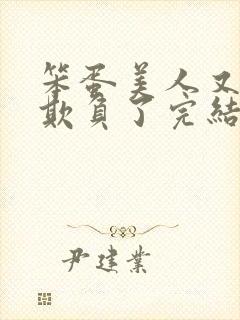 笨蛋美人又
欺負了完結
尹建業